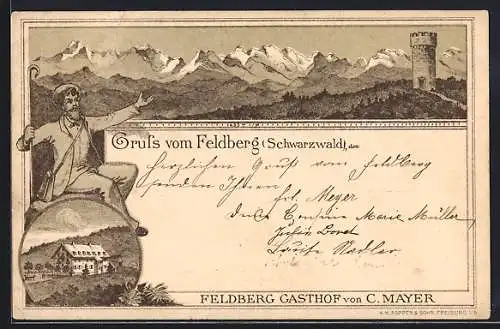 Gruſs vom Feldberg (Schwarzwald), den
herzlichen Gruß vom Feldberg
senden Ihnen
Frl. Meyer
Cousine Marie Müller
Luise Nadler
FELDBERG GASTHOF von C. MAYER